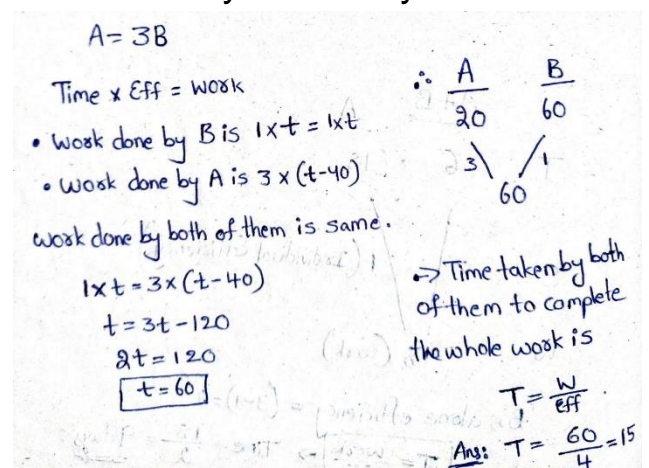 A = 3B
Time x Eff = work
• work done by B is 1xt = 1xt
• work done by A is 3 x (t-40)
work done by both of them is same.
1xt = 3x(t-40)
t = 3t - 120
2t = 120
t = 60
∴ A B
20 60
3 1
60
⇒ Time taken by both
of them to complete
the whole work is
T = W/eff
Ans: T = 60/4 = 15